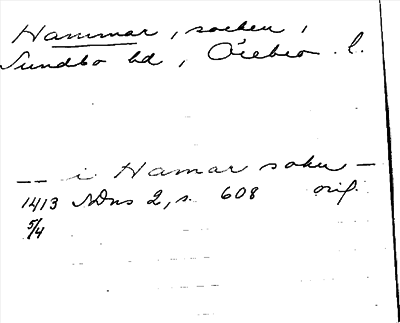 Hammar, socken,
Sundbo hd, Örebro l.
— — i Hamar sokn —
1413 SDns 2, s. 608 orig.
5/4